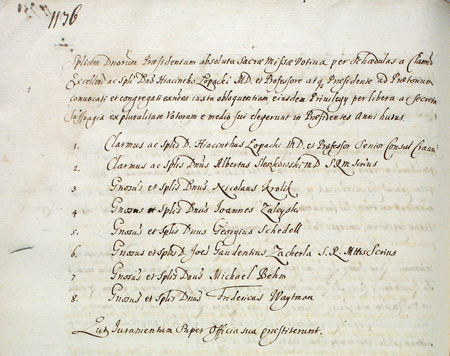 1736
Splēdm Dnorum Præsidentum absoluta Sacræ Missæ Votiva per Schedulas a Clarmo
Excellen ac Splī Dnō Hiacintho Łopacki M.D. et Professore atq Præsidente ad Prætorium
convocati et congregati omnes iuxta obloquentiam eiusdem Privilegij per libera ac Secreta
Suffragia ex pluralitate Votorum e medio sui elegerunt in Præsidentes Anni huius.
1. Clarmus ac Splīs D. Hiacinthus Łopacki M.D. et Professor Senior Consul Cracov
2. Clarmus ac Splīs Dnūs Albertus M D S.R.M Scrius
3. Gnosus et Splīs Dnūs Nicolaus Krolik
4 Gnosus et Splīs Dnūs Joannes Zaleyski
5. Gnosus et Splīs Dnus Georgius Schedell
6. Gnosus et Splīs D. Joēs Gaudentius Zacherla S.R. Mttis Scrius
7 Gnosus et Splīs Dnūs Michael Behm
8. Gnosus et Splīs Dnūs Fridericus Waytman
Juramentum Super Officia sua præstiterunt.